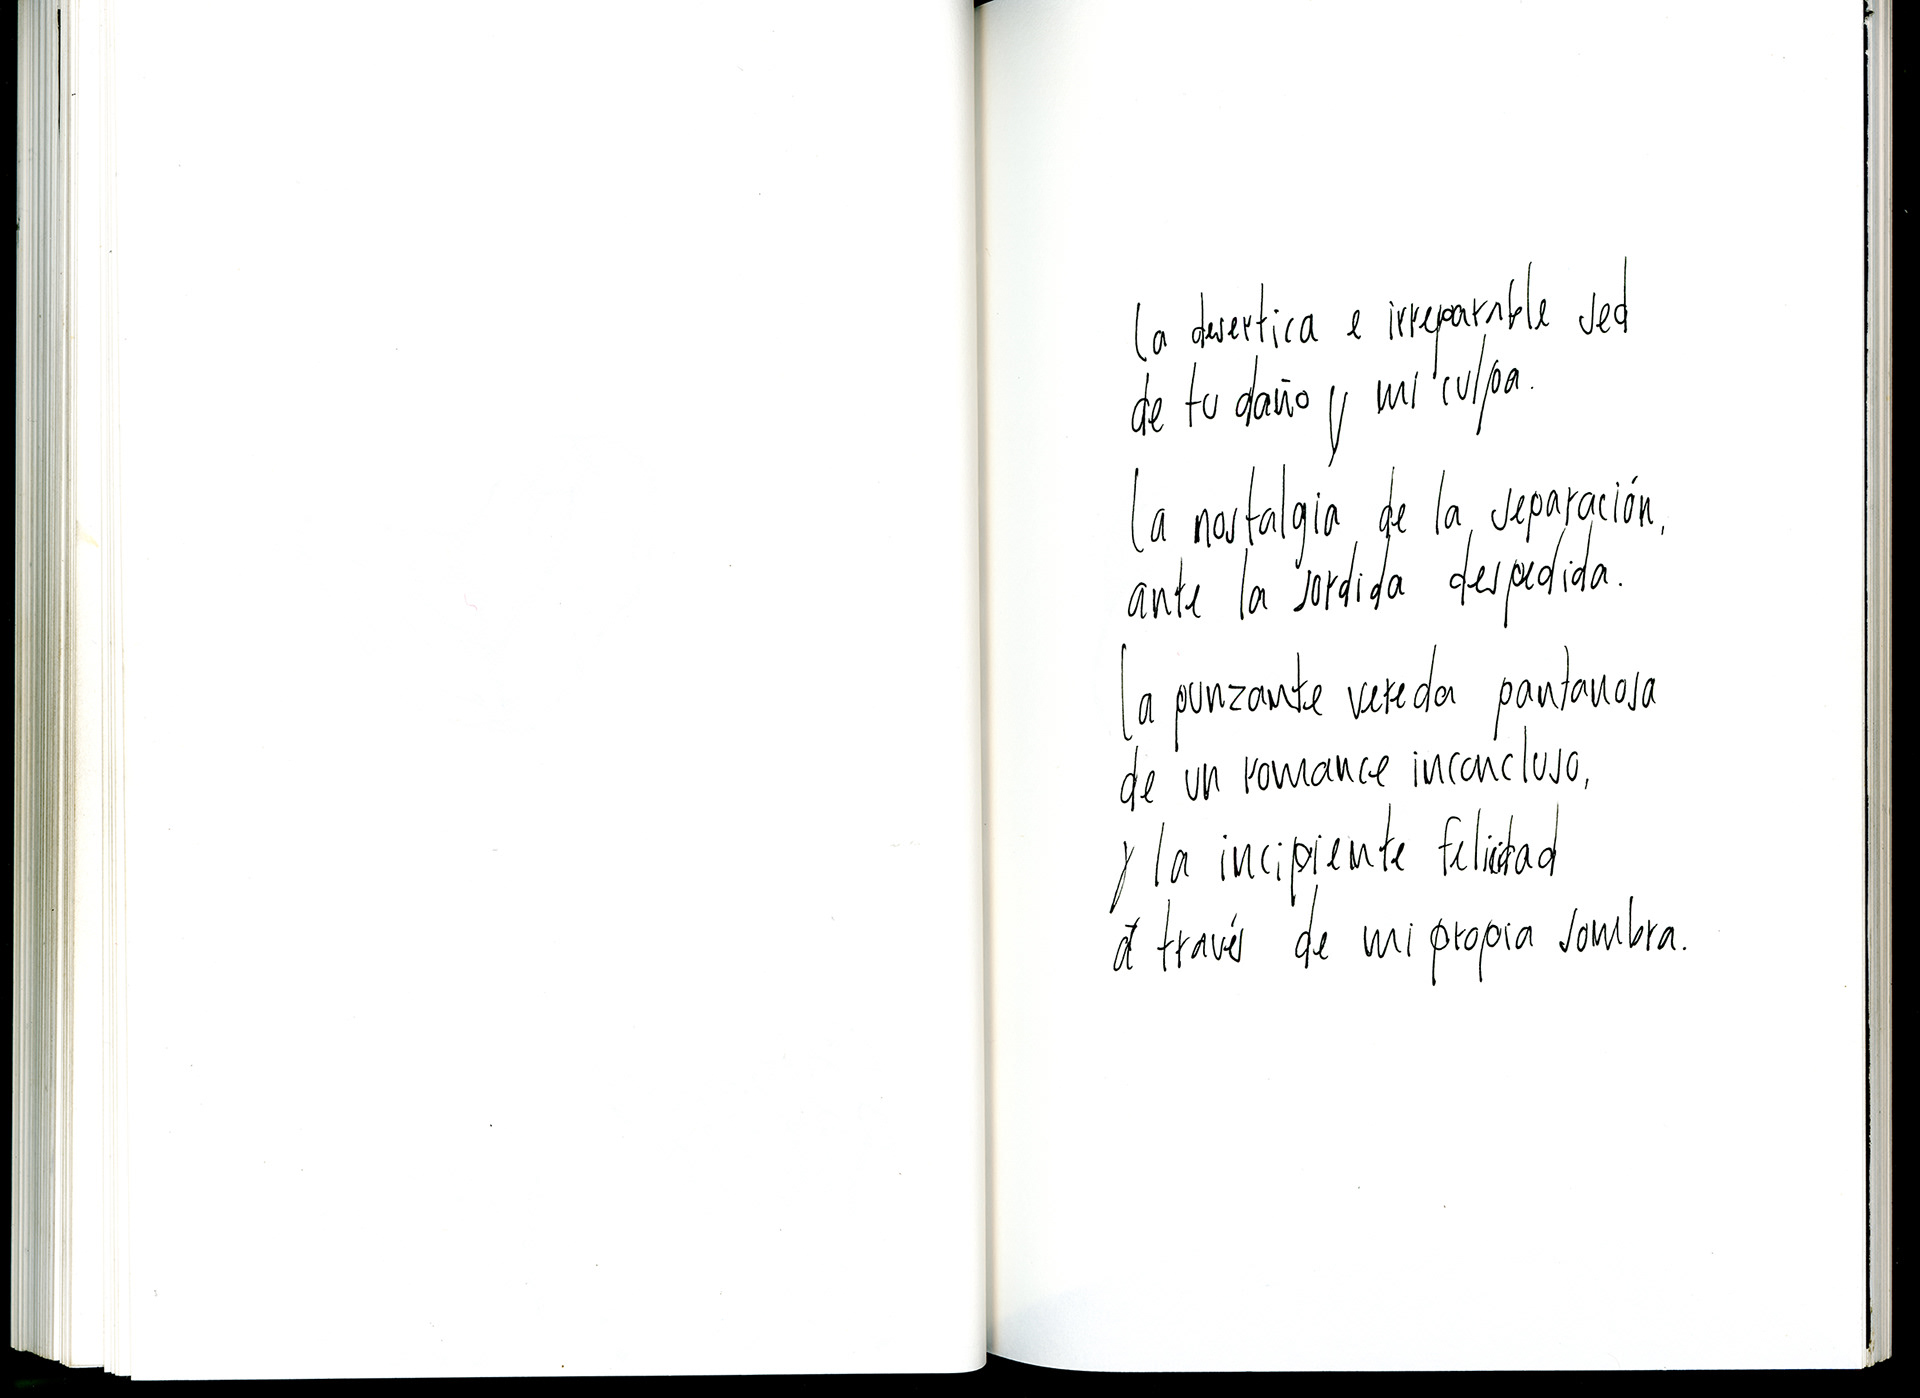 la desertica e irreparable sed
de tu daño y mi culpa.
la nostalgia de la separación,
ante la sordida despedida.
la punzante vereda pantanosa
de un romance inconcluso,
y la incipiente felicidad
a través de mi propia sombra.